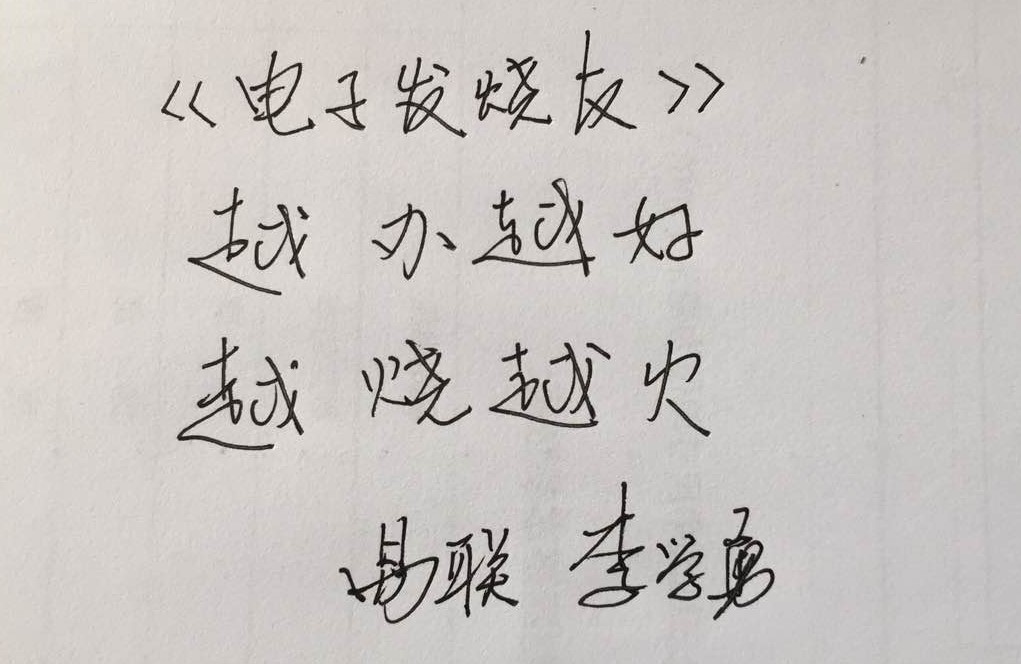 《电子发烧友》
越办越好
越烧越火
易联 李学勇